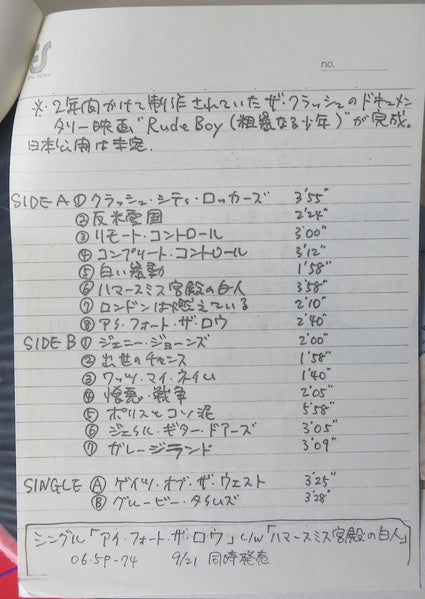 CBS SONY
no.
※・2年間かけて制作されていたザ・クラッシュのドキュメン
タリー映画"Rude Boy (粗暴なる少年)"が完成。
日本公開は未定.
SIDE A ① クラッシュ・シティ・ロッカーズ 3'55"
② 反米愛国 2'24"
③ リモート・コントロール 3'00"
④ コンプリート・コントロール 3'12"
⑤ 白い暴動 1'58"
⑥ ハマースミス宮殿の白人 3'58"
⑦ ロンドンは燃えている 2'10"
⑧ アイ・フォート・ザ・ロウ 2'40"
SIDE B ① ジェニー・ジョーンズ 2'00"
② 出世のチャンス 1'58"
③ ワッツ・マイ・ネイム 1'40"
④ 憎悪・戦争 2'05"
⑤ ポリスとコソ泥 5'58"
⑥ ジェイル・ギター・ドアーズ 3'05"
⑦ ガレージランド 3'09"
SINGLE Ⓐ ゲイツ・オブ・ザ・ウェスト 3'25"
Ⓑ グルービー・タイムズ 3'28"
シングル「アイ・フォート・ザ・ロウ」c/w「ハマースミス宮殿の白人」
06・5P-74 9/21 同時発売